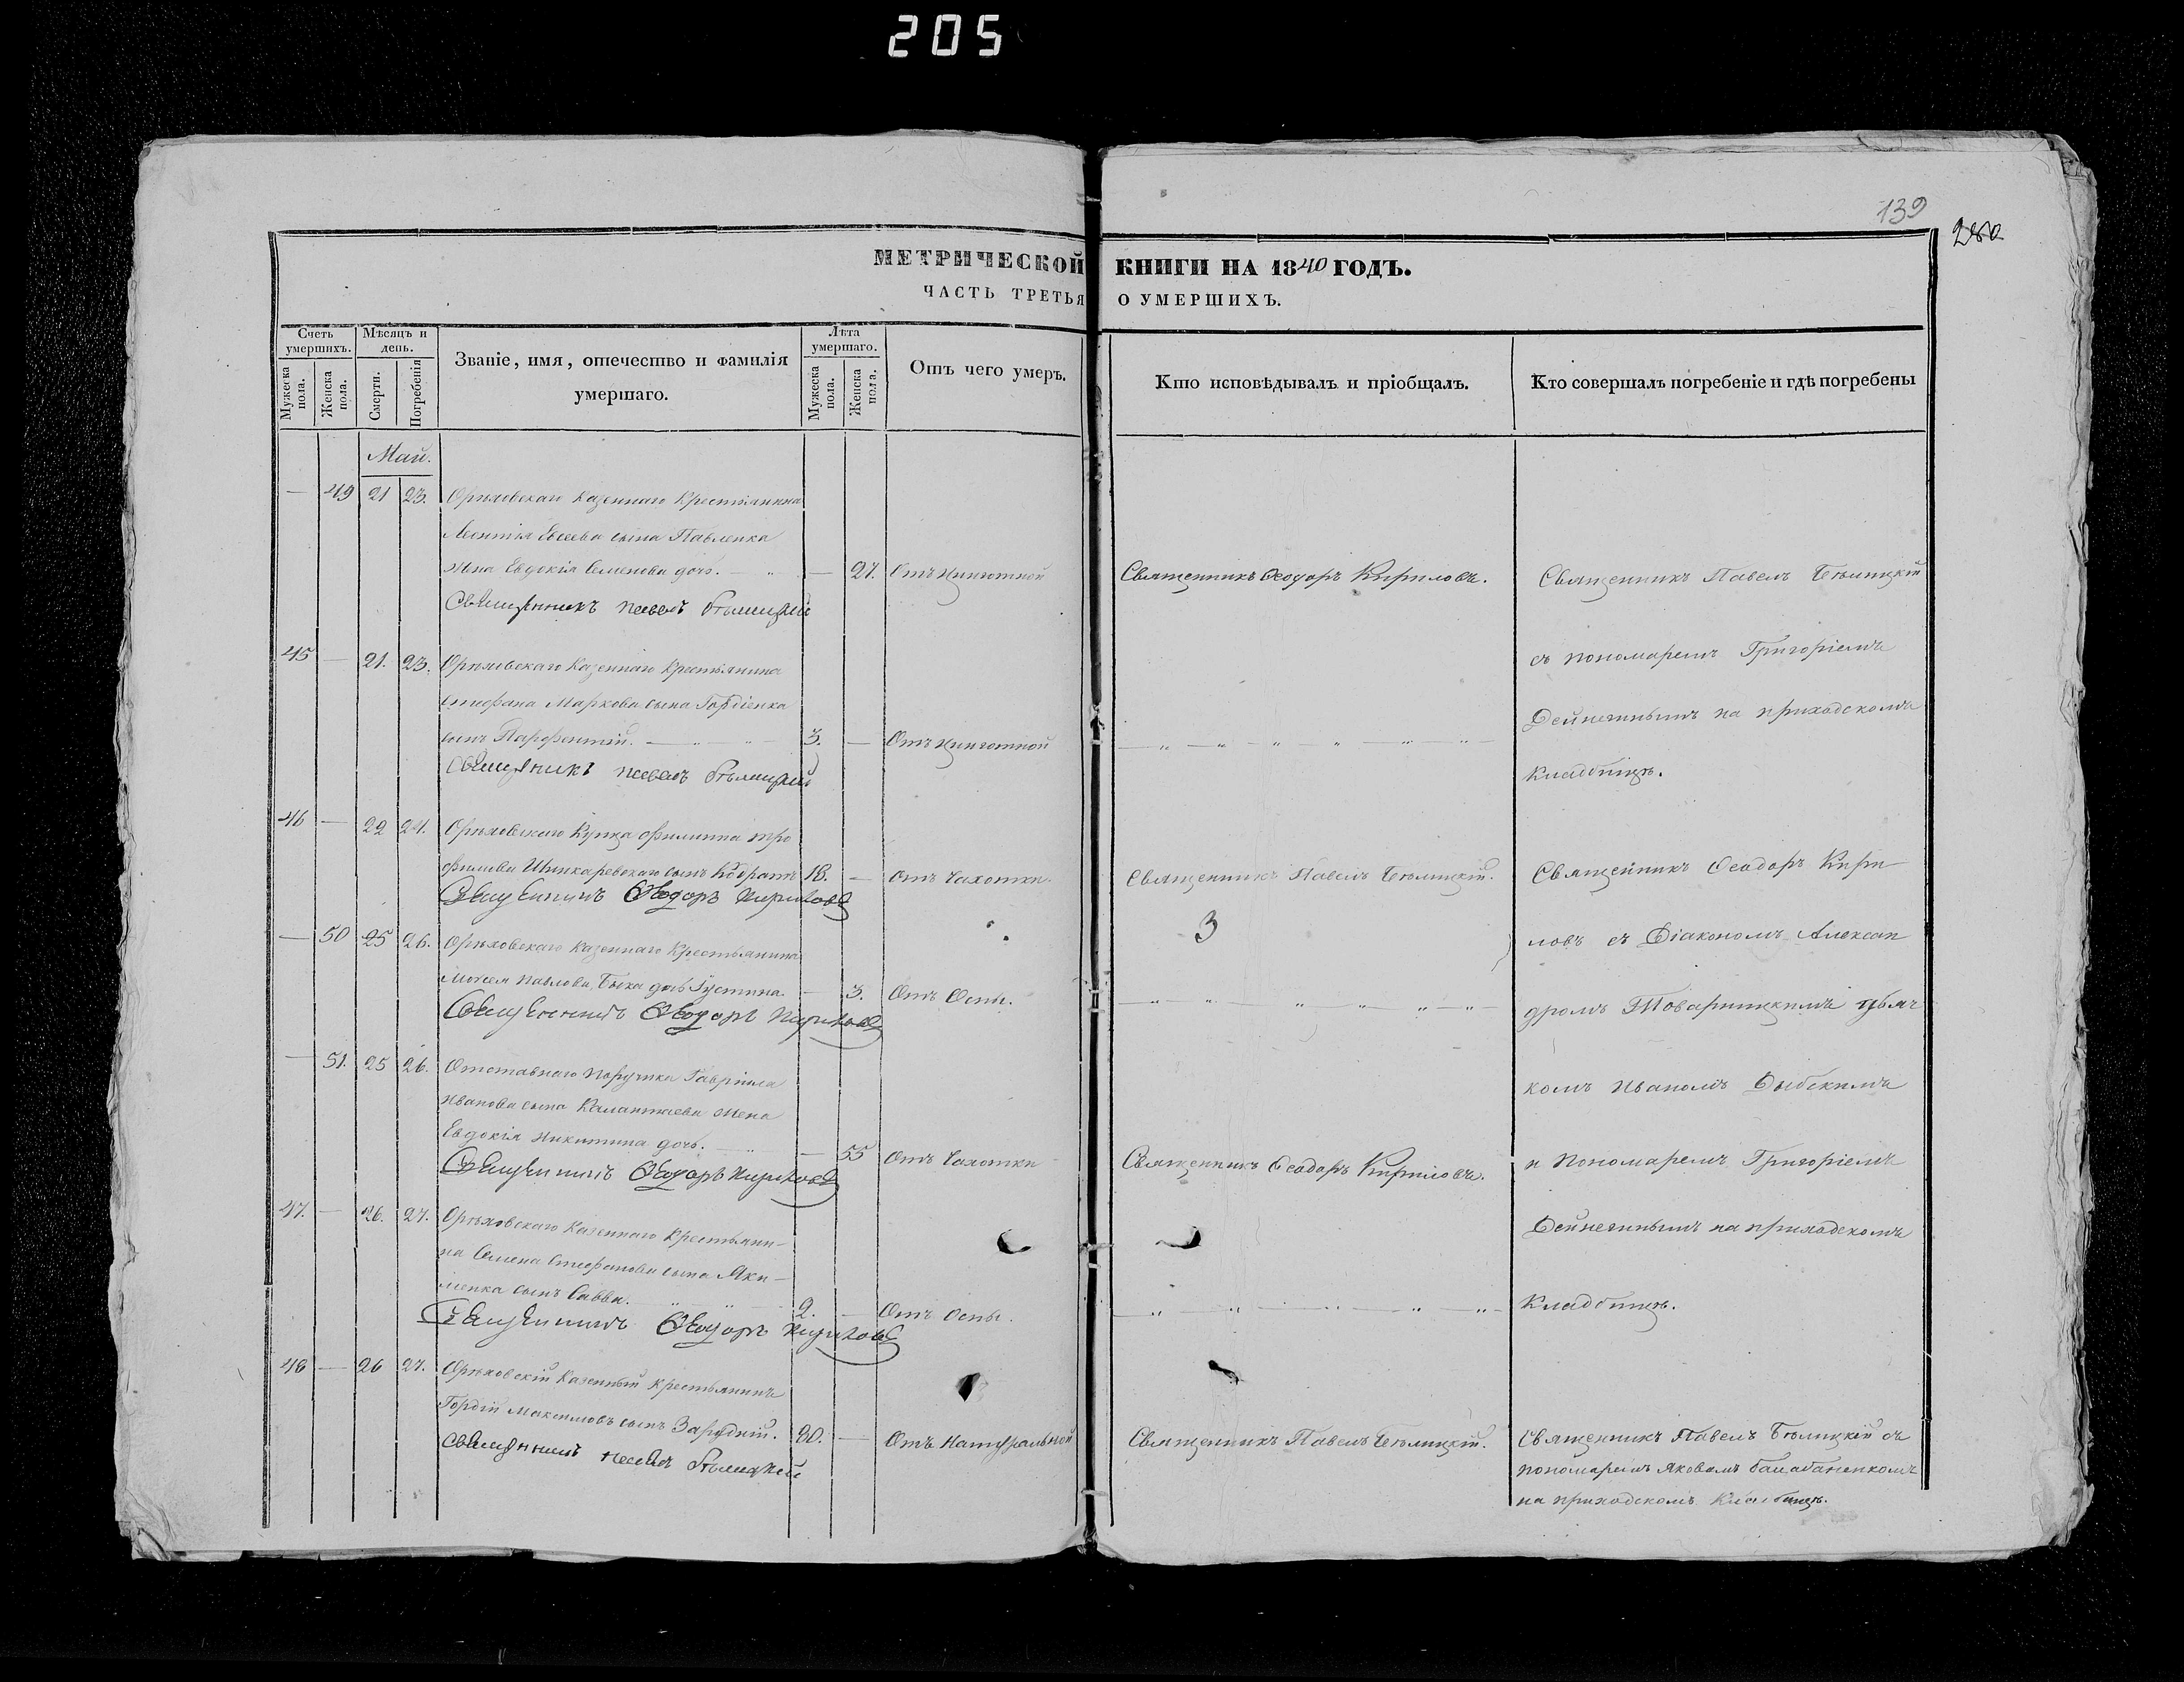 205
139
280
МЕТРИЧЕСКОЙ КНИГИ НА 1840 ГОДЪ.
ЧАСТЬ ТРЕТЬЯ О УМЕРШИХЪ.
Счетъ умершихъ.
Мужеска пола.
Женска пола.
Мѣсяцъ и день.
Смерти.
Погребенія
Званіе, имя, отечество и фамилія
умершаго.
Лѣта умершаго.
Мужеска пола.
Женска пола.
Отъ чего умеръ.
Кто исповѣдывалъ и пріобщалъ.
Кто совершалъ погребеніе и гдѣ погребены
Май.
— 49 21 23. Орѣховскаго Казеннаго Крестьянина
Леонтія Евсеева сына Павленка
жена Евдокія Семенова дочь. — 27. Отъ цинготной Священникъ Ѳеодоръ Кириловъ. Священникъ Павелъ Бѣлицкій
Священникъ Павелъ Бѣлицкій
45 — 21. 23. Орѣховскаго Казеннаго Крестьянина съ пономаремъ Григоріемъ
Стефана Маркова сына Гордіенка Дейнегинымъ на приходскомъ
сынъ Парфентій. 3. — Отъ цинготной кладбищѣ.
Священникъ Павелъ Бѣлицкій
46 — 22 24. Орѣховскаго Купца Филиппа Тро
фимова Шинкаревскаго сынъ Кодратъ 18. — Отъ Чахотки. Священникъ Павелъ Бѣлицкій. Священникъ Ѳеодоръ Кири
Священникъ Ѳеодоръ Кириловъ
3
— 50 25 26. Орѣховскаго Казеннаго Крестьянина ловъ съ Діакономъ Алексан
Моисея Павлова Быка дочь Густина — 3. Отъ Оспы. дромъ Товарницкимъ
Священникъ Ѳеодоръ Кириловъ
— 51. 25 26. Отставнаго Поручика Гавріила комъ Иваномъ
Иванова сына Калантаева жена
Евдокія Никитина дочь. — 55 Отъ Чахотки Священникъ Ѳеодоръ Кириловъ. и Пономаремъ Григоріемъ
Священникъ Ѳеодоръ Кириловъ
47. — 26. 27. Орѣховскаго Казеннаго Крестьяни- Дейнегинымъ на приходскомъ
на Семена Стефанова сына Яки-
менка сынъ Савва. 2. — Отъ Оспы. Кладбищѣ.
Священникъ Ѳеодоръ Кириловъ
48 — 26 27. Орѣховскій Казенный Крестьянинъ
Гордій Максимовъ сынъ Зарудній. 90. — Отъ Натуральной Священникъ Павелъ Бѣлицкій. Священникъ Павелъ Бѣлицкій съ
Священникъ Павелъ Бѣлицкій пономаремъ Яковомъ Балабаненкомъ
на приходскомъ кладбищѣ.